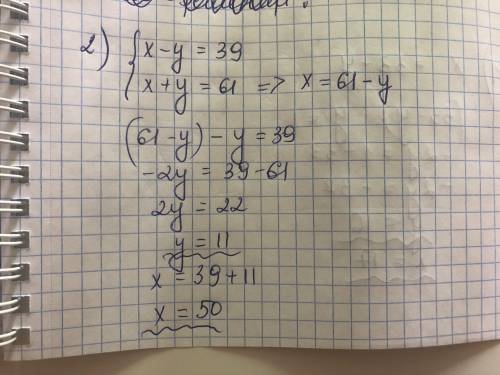 2) { x - y = 39
x + y = 61 => x = 61 - y
(61 - y) - y = 39
-2y = 39 - 61
2y = 22
y = 11
x = 39 + 11
x = 50